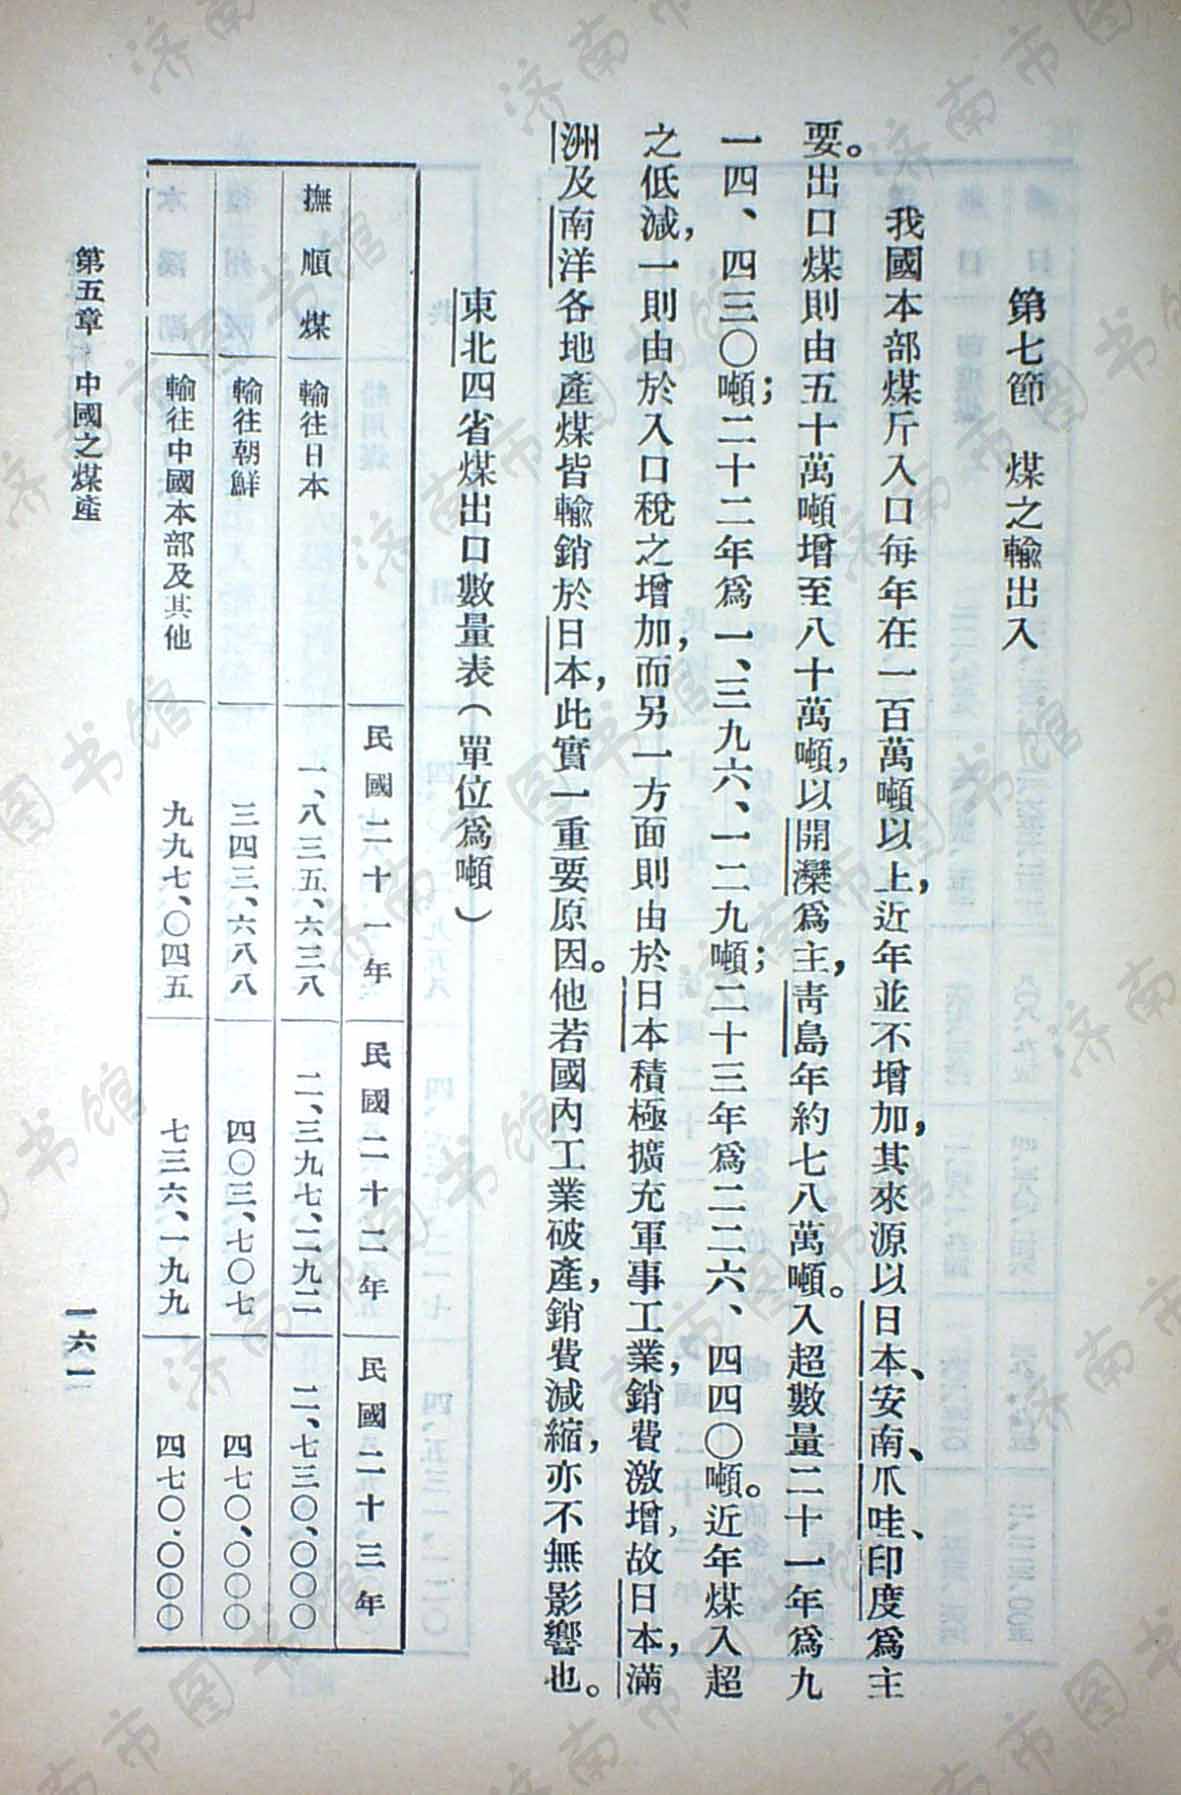 第七節　煤之輸出入
我國本部煤斤入口每年在一百萬噸以上，近年並不增加，其來源以日本、安南、爪哇、印度為主
要。出口煤則由五十萬噸增至八十萬噸，以開灤為主，青島年約七八萬噸。入超數量二十一年為九
一四、四三〇噸；二十二年為一、三九六、一二九噸；二十三年為二二六、四四〇噸。近年煤入超
之低減，一則由於入口稅之增加，而另一方面則由於日本積極擴充軍事工業，銷費激增，故日本，滿
洲及南洋各地產煤皆輸銷於日本，此實一重要原因。他若國內工業破產，銷費減縮，亦不無影響也。
東北四省煤出口數量表（單位為噸）
民國二十一年　民國二十二年　民國二十三年
撫順煤　輸往日本　一、八三五、六三八　二、三九七、二九二　二、七三〇、〇〇〇
輸往朝鮮　三四三、六八八　四〇三、七〇七　四七〇、〇〇〇
輸往中國本部及其他　九九七、〇四五　七三六、一九九　四七〇、〇〇〇
第五章　中國之煤產
一六一
济南市图书馆